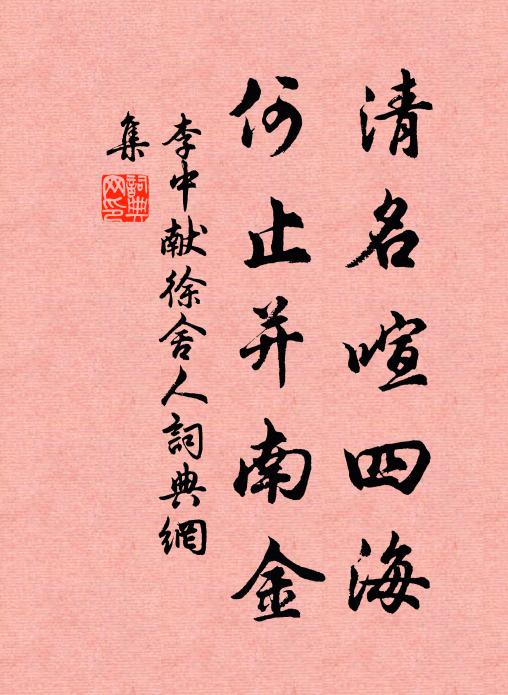 清名喧四海
何止并南金
李中献徐舍人詞典網
集
詞典
网印